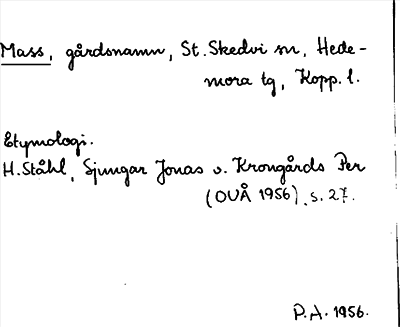 Mass, gårdsnamn, St. Skedvi sn, Hede-
mora tg, Kopp. l.
Etymologi.
H. Ståhl, Sjungar Jonas o. Krongårds Per
(OUÅ 1956), s. 27.
P.A. 1956.